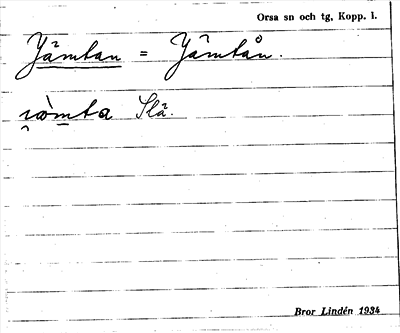 Orsa sn och tg, Kopp. l.
Jämtan = Jämtån.
Slä.
Bror Lindén 1934